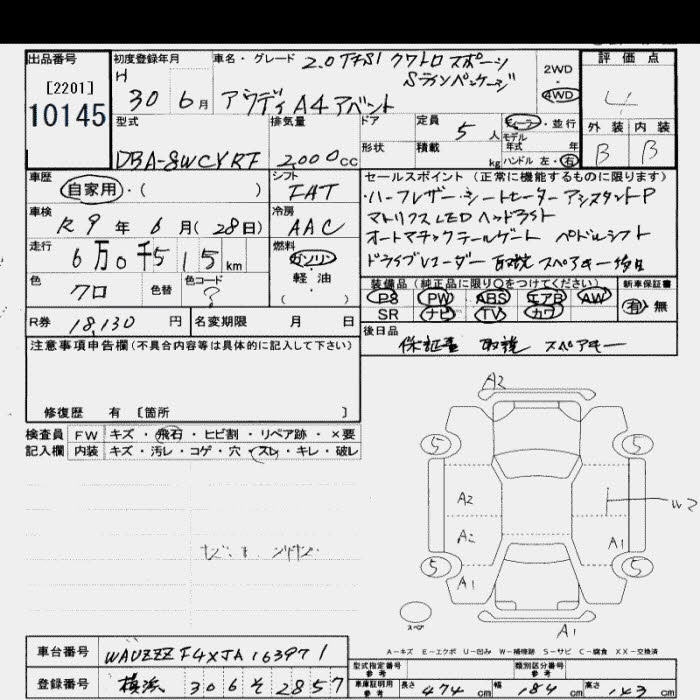 出品番号
[2201]
10145
初度登録年月
H 30 6月
車名・グレード 2.0 TFSI クワトロ スポーツ
Sラインパッケージ
アウディ A4 アバント
2WD
4WD
評価点
4
外装 内装
B B
型式
DBA-8WCYRF
排気量
2,000cc
ドア
形状
定員 5人
積載 kg
ディーラー・並行
モデル
年式 年
ハンドル 左・右
車歴
自家用・( )
シフト
FAT
車検
R 9年 6月(28日)
冷房
AAC
走行
6万0千515km
燃料
ガソリン
軽油
( )
色
クロ
色替
色コード
?
R券 18,130円
名変期限 月 日
セールスポイント (正常に機能するものに限ります)
・ハーフレザー・シートヒーター アシスタントP
マトリクスLEDヘッドライト
オートマチックテールゲート パドルシフト
ドライブレコーダー 取説 スペアキー後日
装備品(純正品に限り○をつけてください)
PS PW ABS エアB AW
SR ナビ TV カワ
新車保証書
有・無
後日品
保証書 取説 スペアキー
注意事項申告欄(不具合内容等は具体的に記入して下さい)
修復歴 有 [箇所 ]
検査員 FW キズ・飛石・ヒビ割・リペア跡・×要
記入欄 内装 キズ・汚レ・コゲ・穴・スレ・キレ・破レ
A2
5 5
A2
A2 A1
5 5
A1
スペア
A1
A-キズ E-エクボ U-凹み W-補修跡 S-サビ C-腐食 XX-交換済
車台番号 WAUZZZF4XJA163971
登録番号 横浜 306 そ 2857
型式指定番号
参考
類別区分番号
参考
車庫証明用
参考
長さ 474cm 幅 184cm 高さ 143cm